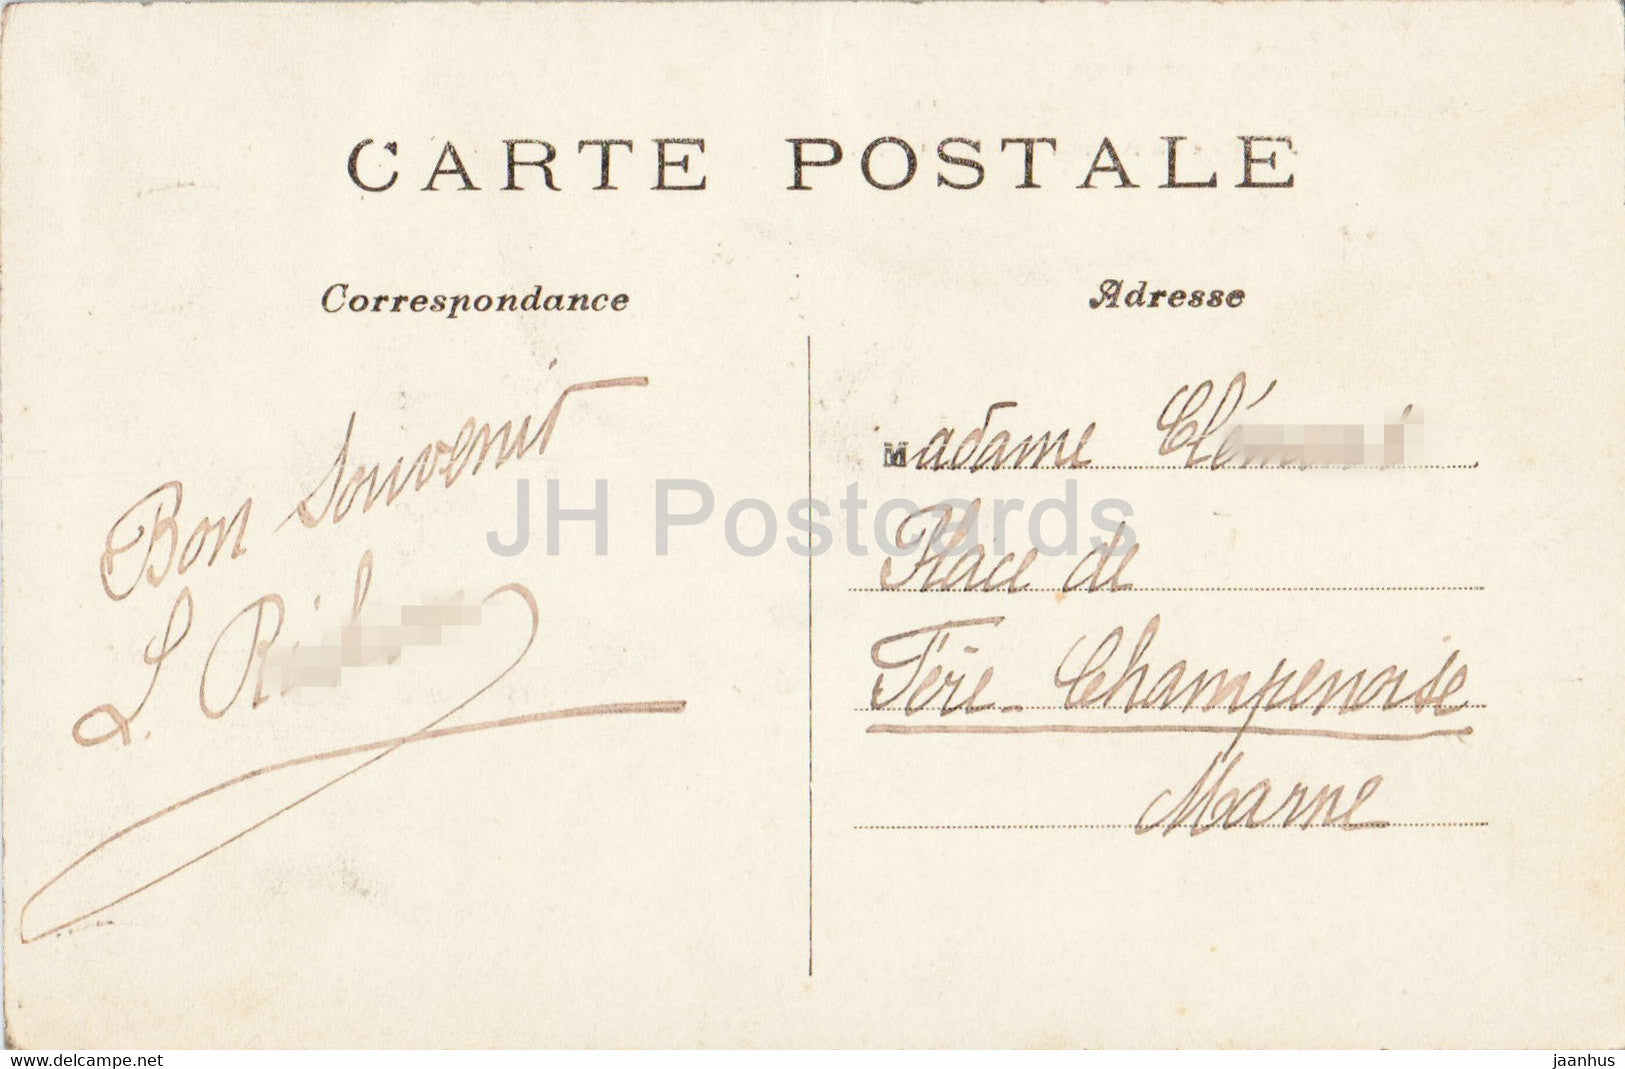 CARTE POSTALE
Correspondance
Adresse
Bon Souvenir
L.
Madame
Place de
Fère-Champenoise
Marne
JH Postcards
www.delcampe.net
jaanhus